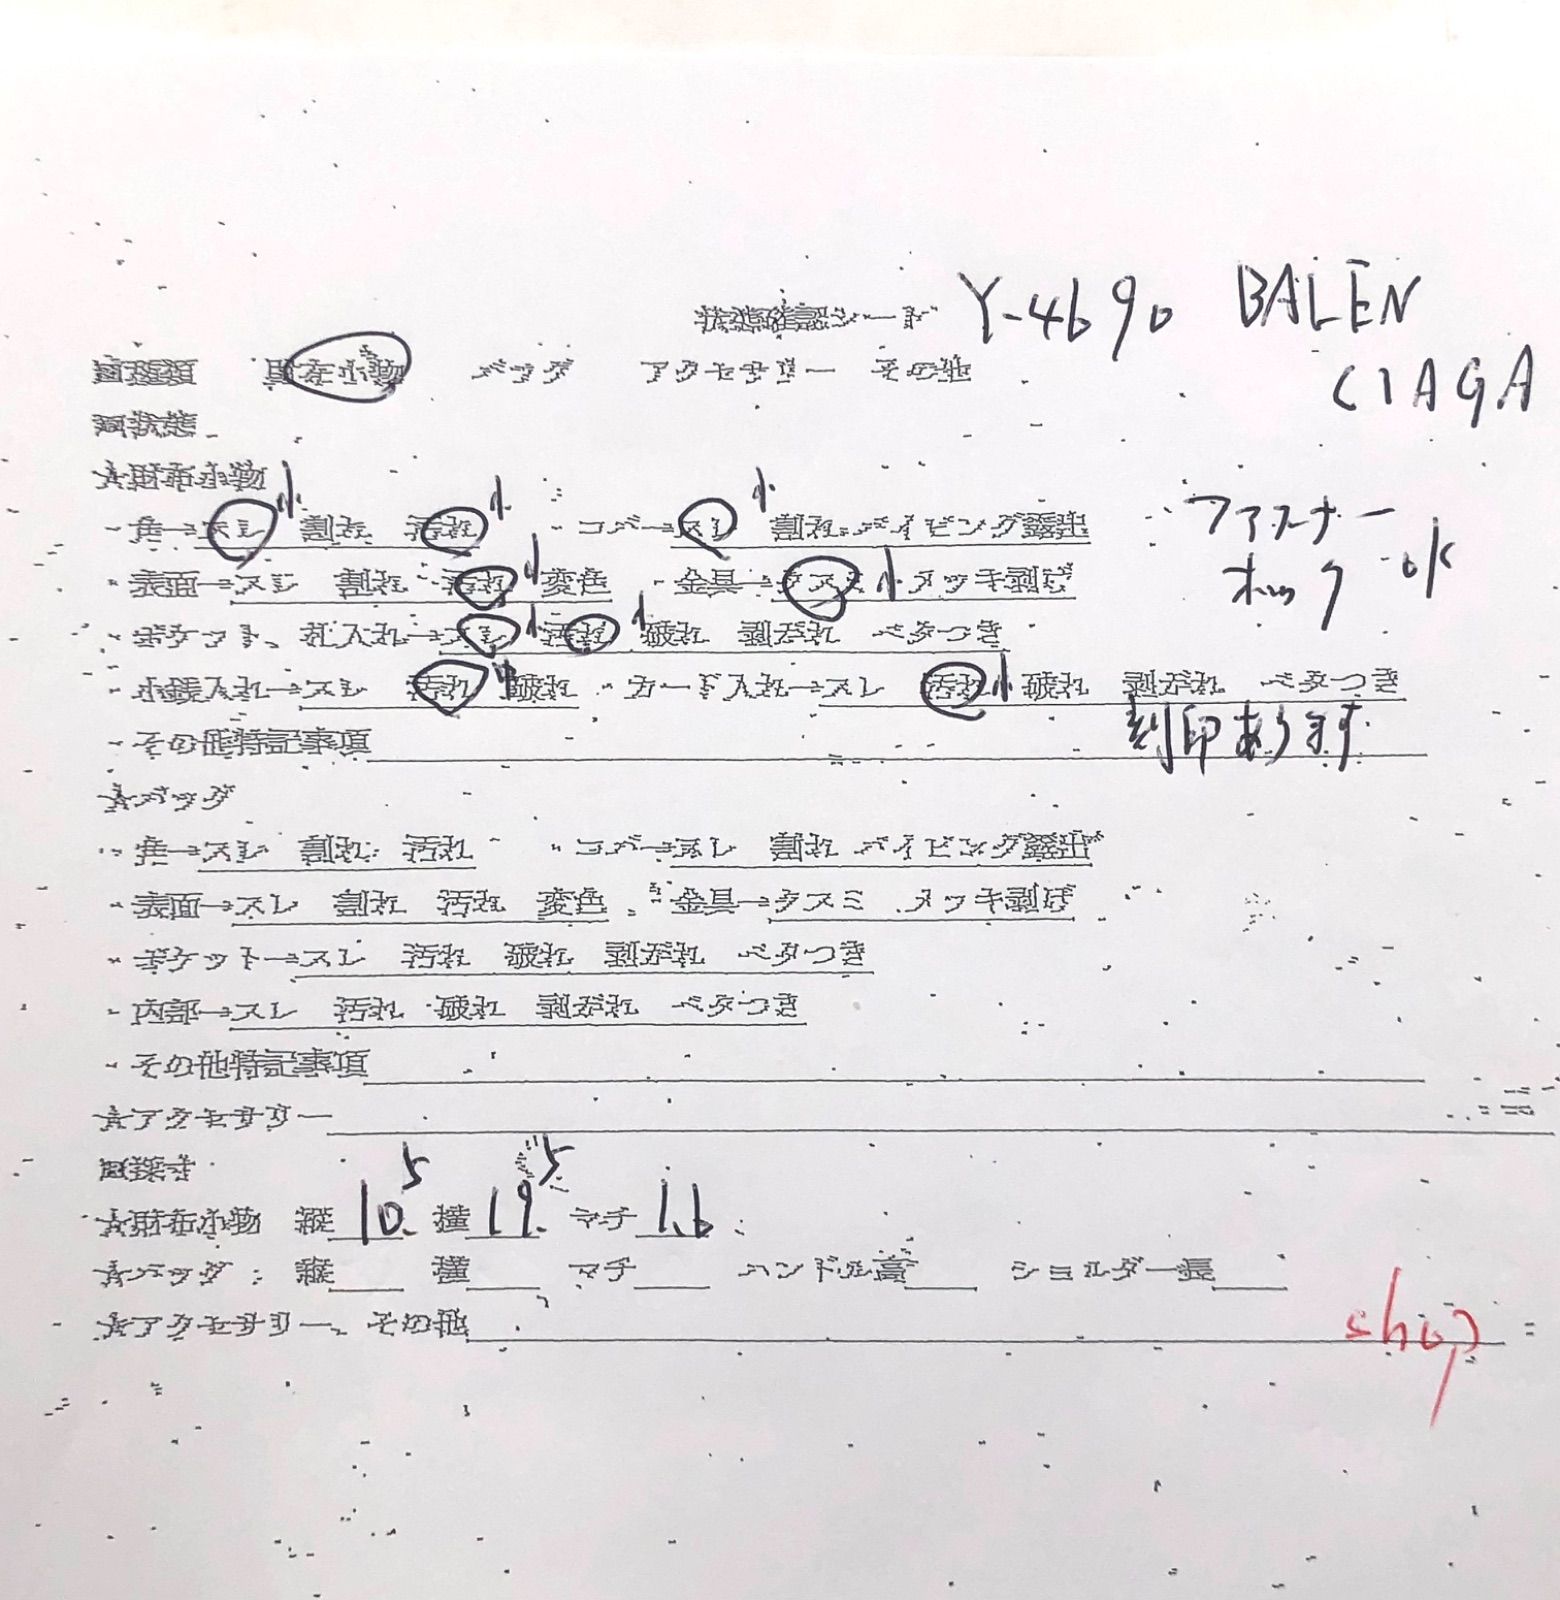 状態確認シート Y-4690 BALEN
CIAGA
■種類 財布小物 バッグ アクセサリー その他
■状態
★財布小物
・角→スレ小 割れ 汚れ小 ・コバ→スレ小 割れ パイピング露出
ファスナー
・表面→スレ 割れ 汚れ小 変色 ・金具→クスミ小 メッキ剥げ
ホック ok
・ポケット、札入れ→スレ小 汚れ小 破れ 剥がれ ベタつき
・小銭入れ→スレ 汚れ中 破れ ・カード入れ→スレ 汚れ小 破れ 剥がれ ベタつき
・その他特記事項 刻印あります
★バッグ
・角→スレ 割れ 汚れ ・コバ→スレ 割れ パイピング露出
・表面→スレ 割れ 汚れ 変色 ・金具→クスミ メッキ剥げ
・ポケット→スレ 汚れ 破れ 剥がれ ベタつき
・内部→スレ 汚れ 破れ 剥がれ ベタつき
・その他特記事項
★アクセサリー
■採寸
★財布小物 縦 10.5 横 19.5 マチ 1.6
★バッグ 縦 横 マチ ハンドル高 ショルダー長
★アクセサリー、その他
shop